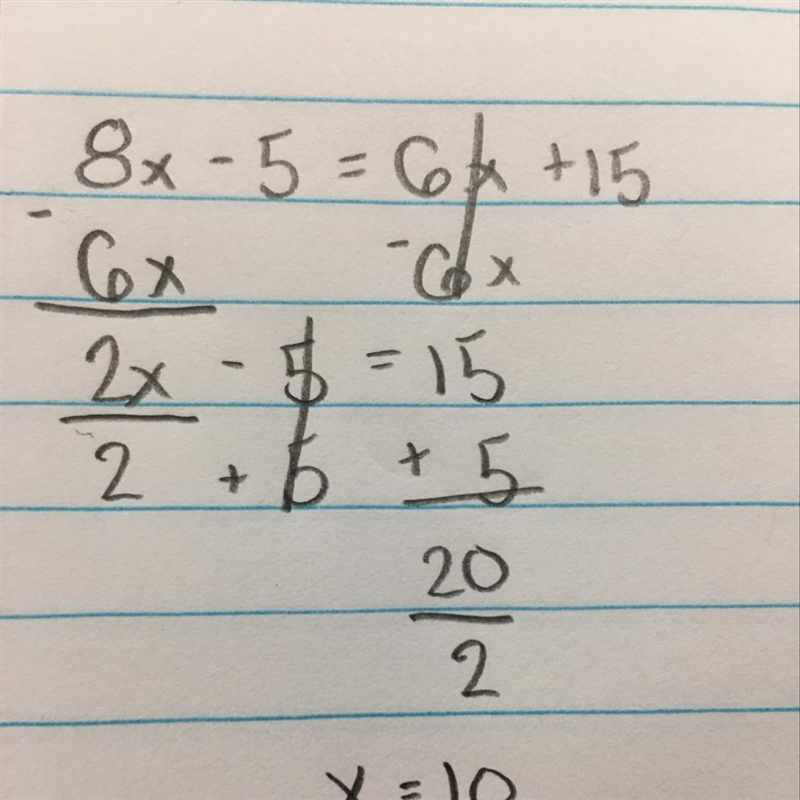 8x - 5 = 6x + 15
- 6x - 6x
2x - 5 = 15
2 + 5 + 5
20
2
x = 10